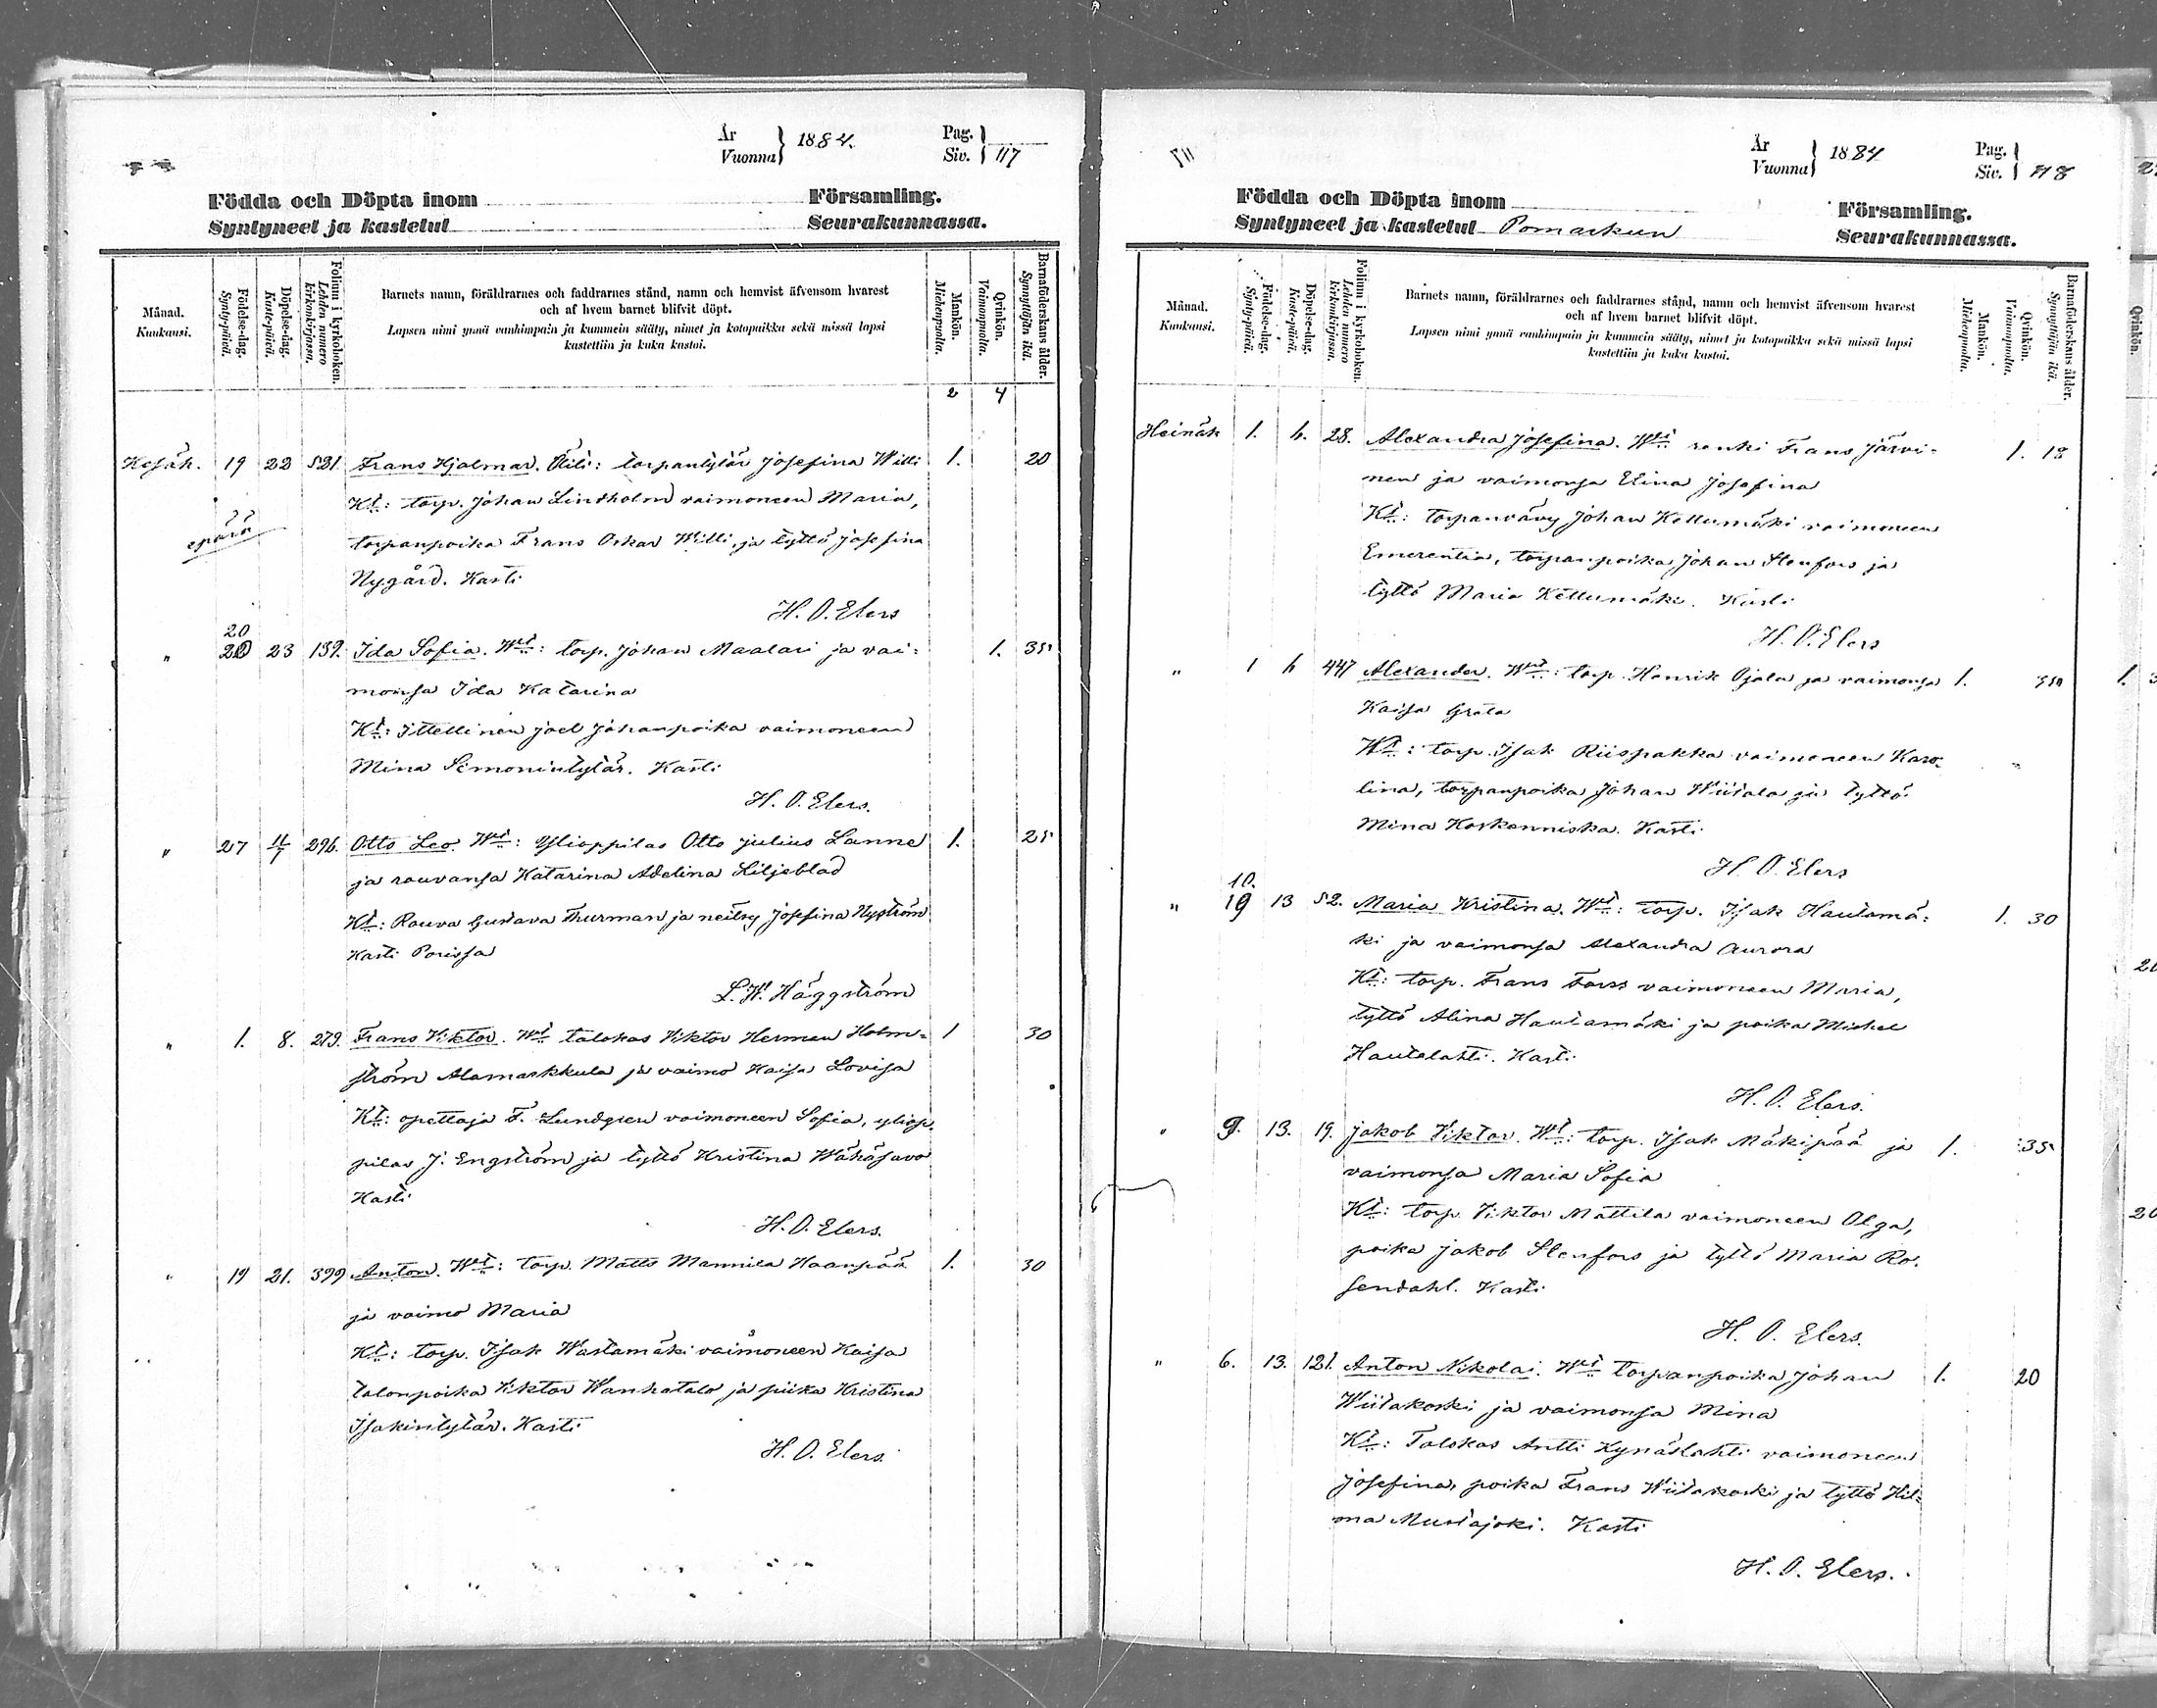 År Vuonna 1884. Pag. Siv. 117
Födda och Döpta inom Församling.
Syntyneet ja kastetut Seurakunnassa.
Månad. Kuukausi.
Födelse-dag. Synty-päivä.
Döpelse-dag. Kaste-päivä.
Folium i kyrkoboken. Lehden numero kirkonkirjassa.
Barnets namn, föräldrarnes och faddrarnes stånd, namn och hemvist äfvensom hvarest
och af hvem barnet blifvit döpt.
Lapsen nimi ynnä vanhimpain ja kummein sääty, nimet ja kotopaikka sekä missä lapsi
kastettiin ja kuka kastoi.
Mankön. Miehenpuolta.
Qvinkön. Vaimonpuolta.
Barnaföderskans ålder. Synnyttäjän ikä.
2 4
Kesäk. 19 22 521. Frans Hjalmar. Äiti: torpantytär Josefina Willi 1. 20
Kt: torp. Johan Lindholm vaimoneen Maria,
epärä
torpanpoika Frans Oskar Willi, ja tyttö Josefina
Nygård. Kasti
H. O. Elers
20
" 20 23 139. Ida Sofia. Wt: torp. Johan Maalari ja vai- 1. 35
monsa Ida Katarina
Kt: Ittellinen Joel Johanpoika vaimoneen
Mina Simonintytär. Kasti
H. O. Elers.
" 27 11/7 296. Otto Leo. Wt: Ylioppilas Otto Julius Lanne 1. 25
ja rouvansa Katarina Adelina Liljeblad
Kt: Rouva Gustava Thurman ja neitsy Josefina Nyström
Kasti Porissa
L. W. Häggström
" 1. 8. 279. Frans Viktor. Wt talokas Viktor Herman Holm- 1 30
ström Alamarkkula ja vaimo Kaisa Lovisa
Kt: opettaja F. Lundgren vaimoneen Sofia, yliop-
pilas J. Engström ja tyttö Kristina Wähäsavo
Kasti
H. O. Elers.
" 19 21. 399 Anton. Wt: torp. Matts Mannila Haanpää 1. 30
ja vaimo Maria
Kt: torp. Isak Wastamäki vaimoneen Kaisa
talonpoika Viktor Wanhatalo ja piika Kristina
Isakintytär. Kasti
H. O. Elers.
VII
År Vuonna 1884 Pag. Siv. 118
Födda och Döpta inom Församling.
Syntyneet ja kastetut Pomarkun Seurakunnassa.
Månad. Kuukausi.
Födelse-dag. Synty-päivä.
Döpelse-dag. Kaste-päivä.
Folium i kyrkoboken. Lehden numero kirkonkirjassa.
Barnets namn, föräldrarnes och faddrarnes stånd, namn och hemvist äfvensom hvarest
och af hvem barnet blifvit döpt.
Lapsen nimi ynnä vanhimpain ja kummein sääty, nimet ja kotopaikka sekä missä lapsi
kastettiin ja kuka kastoi.
Mankön. Miehenpuolta.
Qvinkön. Vaimonpuolta.
Barnaföderskans ålder. Synnyttäjän ikä.
Qvinkön.
Heinäk 1. 6. 28. Alexandra Josefina. Wt renki Frans Järvi- 1. 18
nen ja vaimonsa Elina Josefina
Kt: torpanvävy Johan Kettumäki vaimoneen
Emerentia, torpanpoika Johan Stenfors ja
tyttö Maria Kettumäki. Kasti
H. O. Elers
" 1 6 447 Alexander. Wt: torp. Henrik Ojala ja vaimonsa 1.
Kaisa Greta
Kt: torp. Isak Riispakka vaimoneen Karo-
lina, torpanpoika Johan Wiitala ja tyttö
Mina Koskenniska. Kasti
H. O. Elers
10.
" 19 13 52. Maria Kristina. Wt: torp. Isak Hautamä- 1. 30
ki ja vaimonsa Alexandra Aurora
Kt: torp. Frans Forss vaimoneen Maria,
tyttö Alina Hautamäki ja poika Mickel
Hautalahti. Kasti
H. O. Elers.
" 9. 13. 19. Jakob Viktor. Wt: torp. Isak Mäkipää ja 1. 35
vaimonsa Maria Sofia
Kt: torp. Viktor Mattila vaimoneen Olga,
poika Jakob Stenfors ja tyttö Maria Ro-
sendahl. Kasti
H. O. Elers.
" 6. 13. 121. Anton Nikolai. Wt torpanpoika Johan 1. 20
Wiitakoski ja vaimonsa Mina
Kt: Talokas Antti Kynäslahti vaimoneen
Josefina, poika Frans Wiitakoski ja tyttö Hil-
ma Mustajoki. Kasti
H. O. Elers.